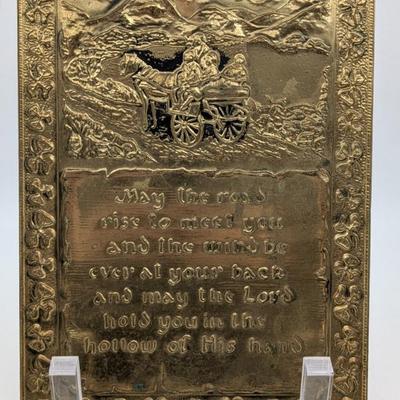 May the road
rise to meet you
and the wind be
ever at your back
and may the Lord
hold you in the
hollow of His hand